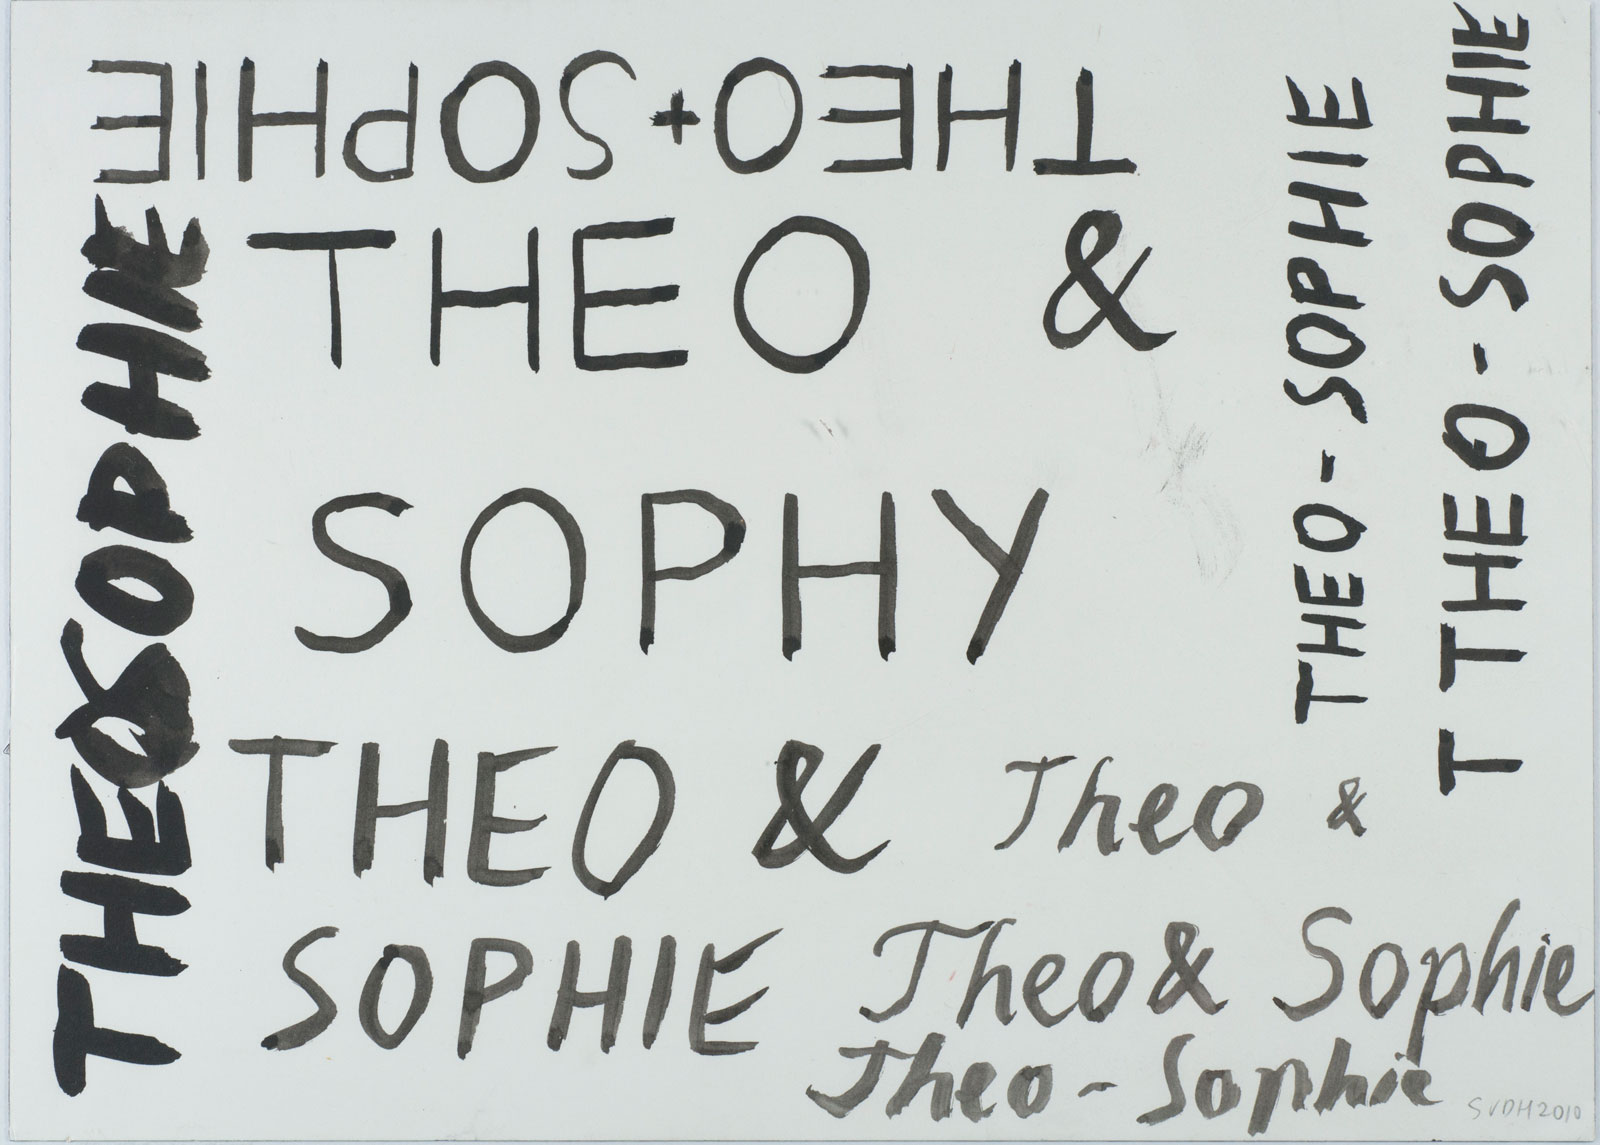 THEO+SOPHIE
THEO &
SOPHY
THEO &
SOPHIE
THEOSOPHIE
THEO-SOPHIE
T THEO-SOPHIE
Theo &
Theo & Sophie
Theo-Sophie
SVDH2010